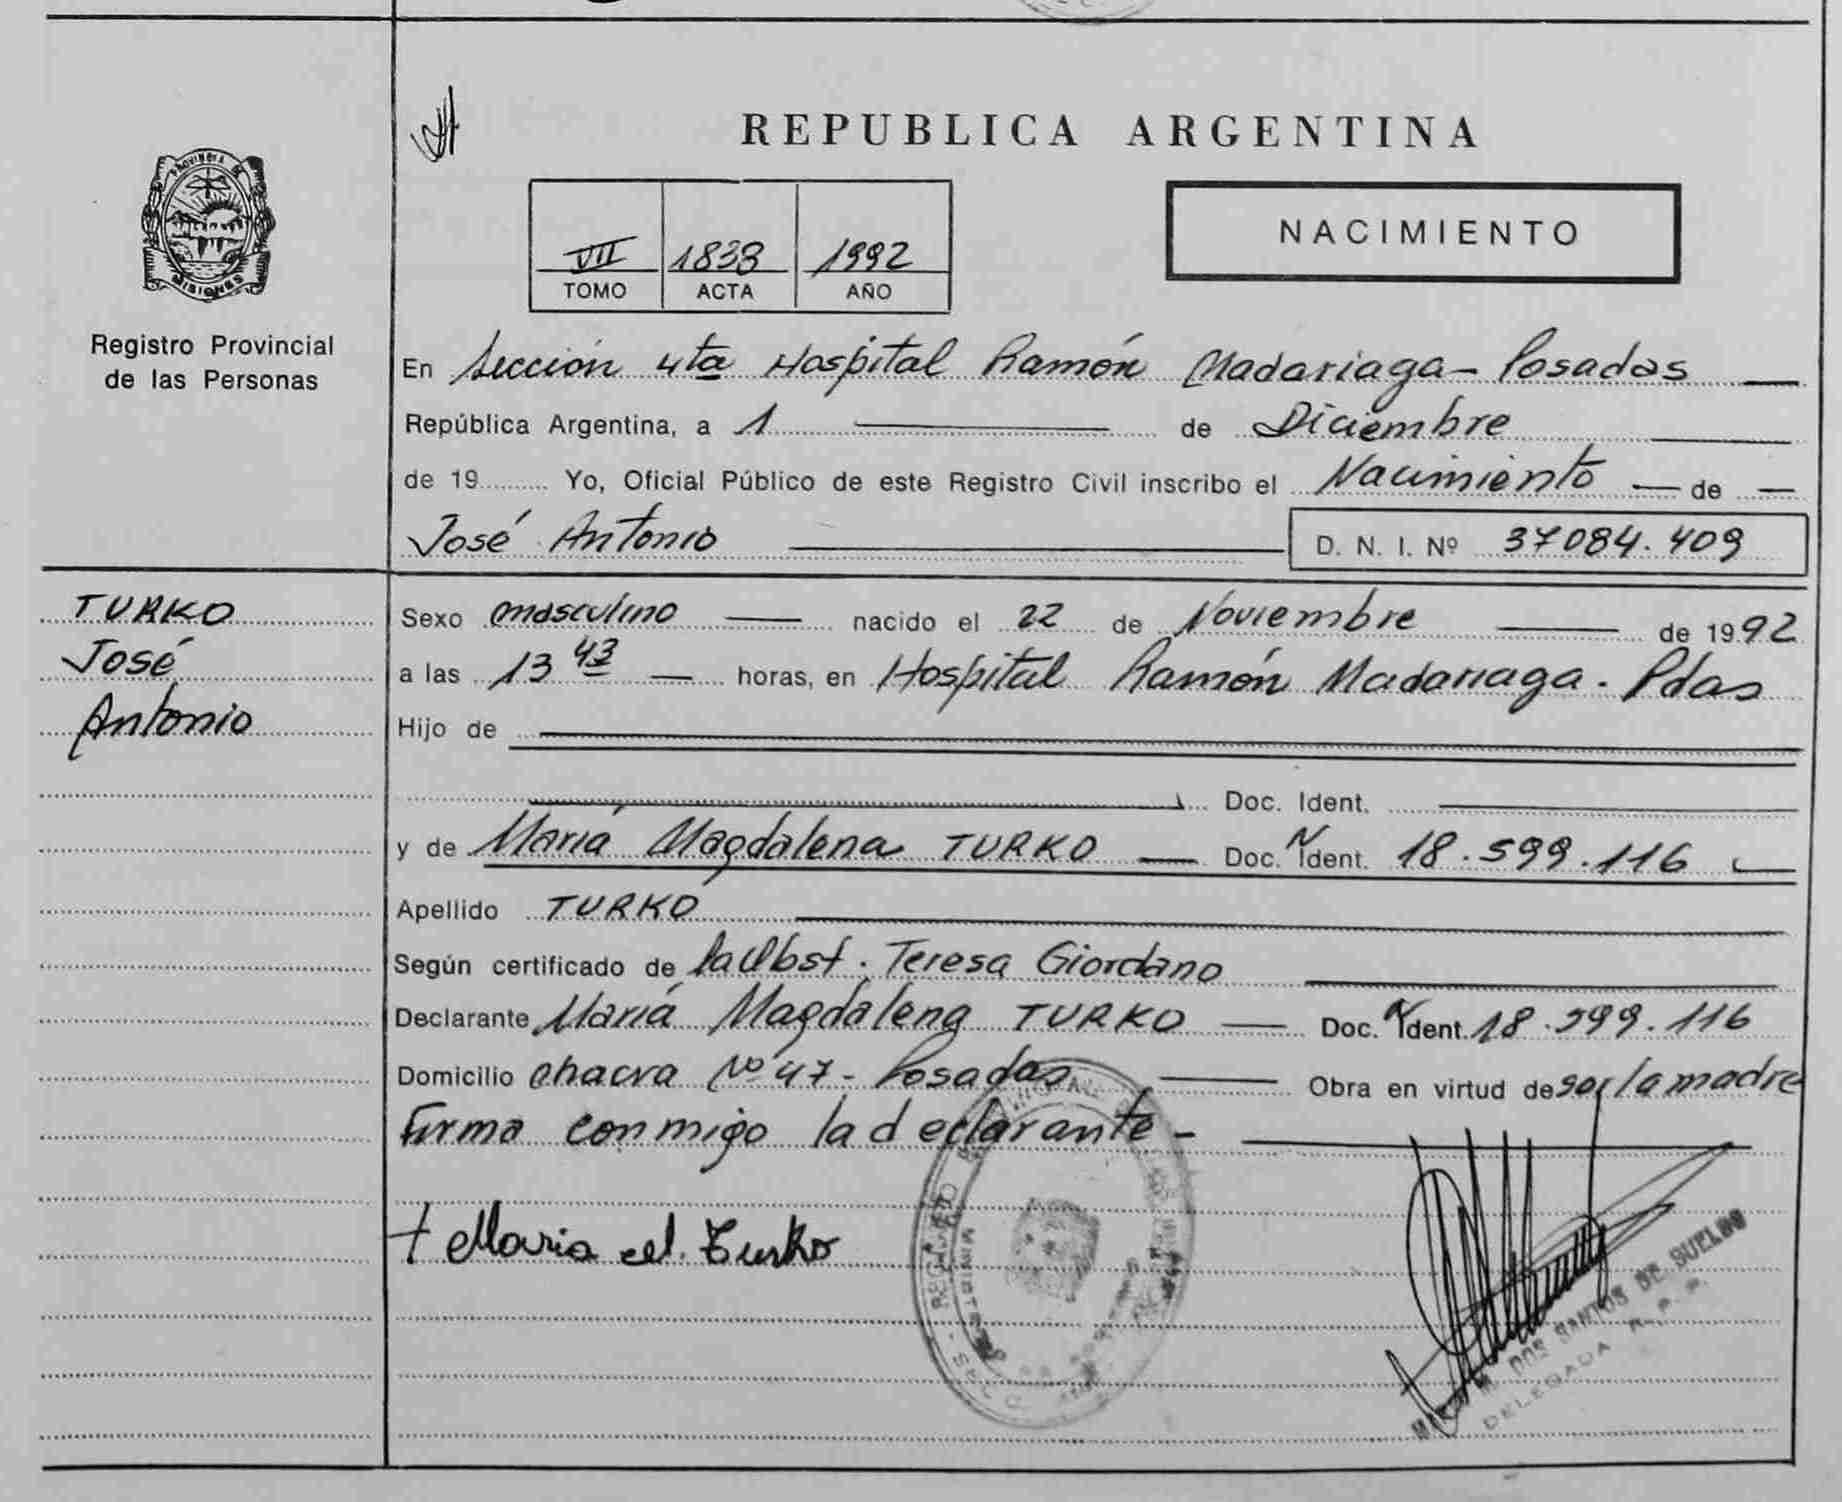 REPUBLICA ARGENTINA
PROVINCIA DE
MISIONES
Registro Provincial
de las Personas
VII 1833 1992
TOMO ACTA AÑO
NACIMIENTO
En Sección 4ta Hospital Ramón Madariaga - Posadas
República Argentina, a 1 de Diciembre
de 19 Yo, Oficial Público de este Registro Civil inscribo el Nacimiento de
José Antonio D. N. I. Nº 37084.409
TURKO
José
Antonio
Sexo masculino nacido el 22 de Noviembre de 1992
a las 13 43 horas, en Hospital Ramón Madariaga. Pdas
Hijo de
Doc. Ident.
y de Maria Magdalena TURKO Doc. N Ident. 18.599.116
Apellido TURKO
Según certificado de la Obst. Teresa Giordano
Declarante Maria Magdalena TURKO Doc. N Ident. 18.599.116
Domicilio chacra Nº 47 - Posadas Obra en virtud de ser la madre
Firma conmigo la declarante -
+ Maria M. Turko
DOS SANTOS DE SUELDO
DELEGADA R. P. P.